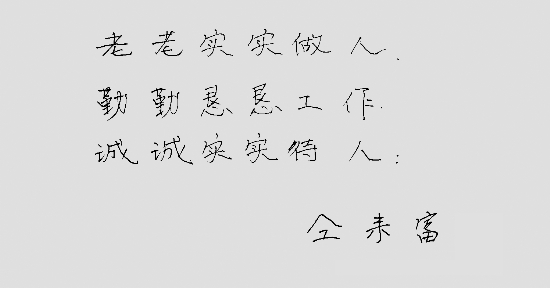 老老实实做人.
勤勤恳恳工作.
诚诚实实待人;
仝来富